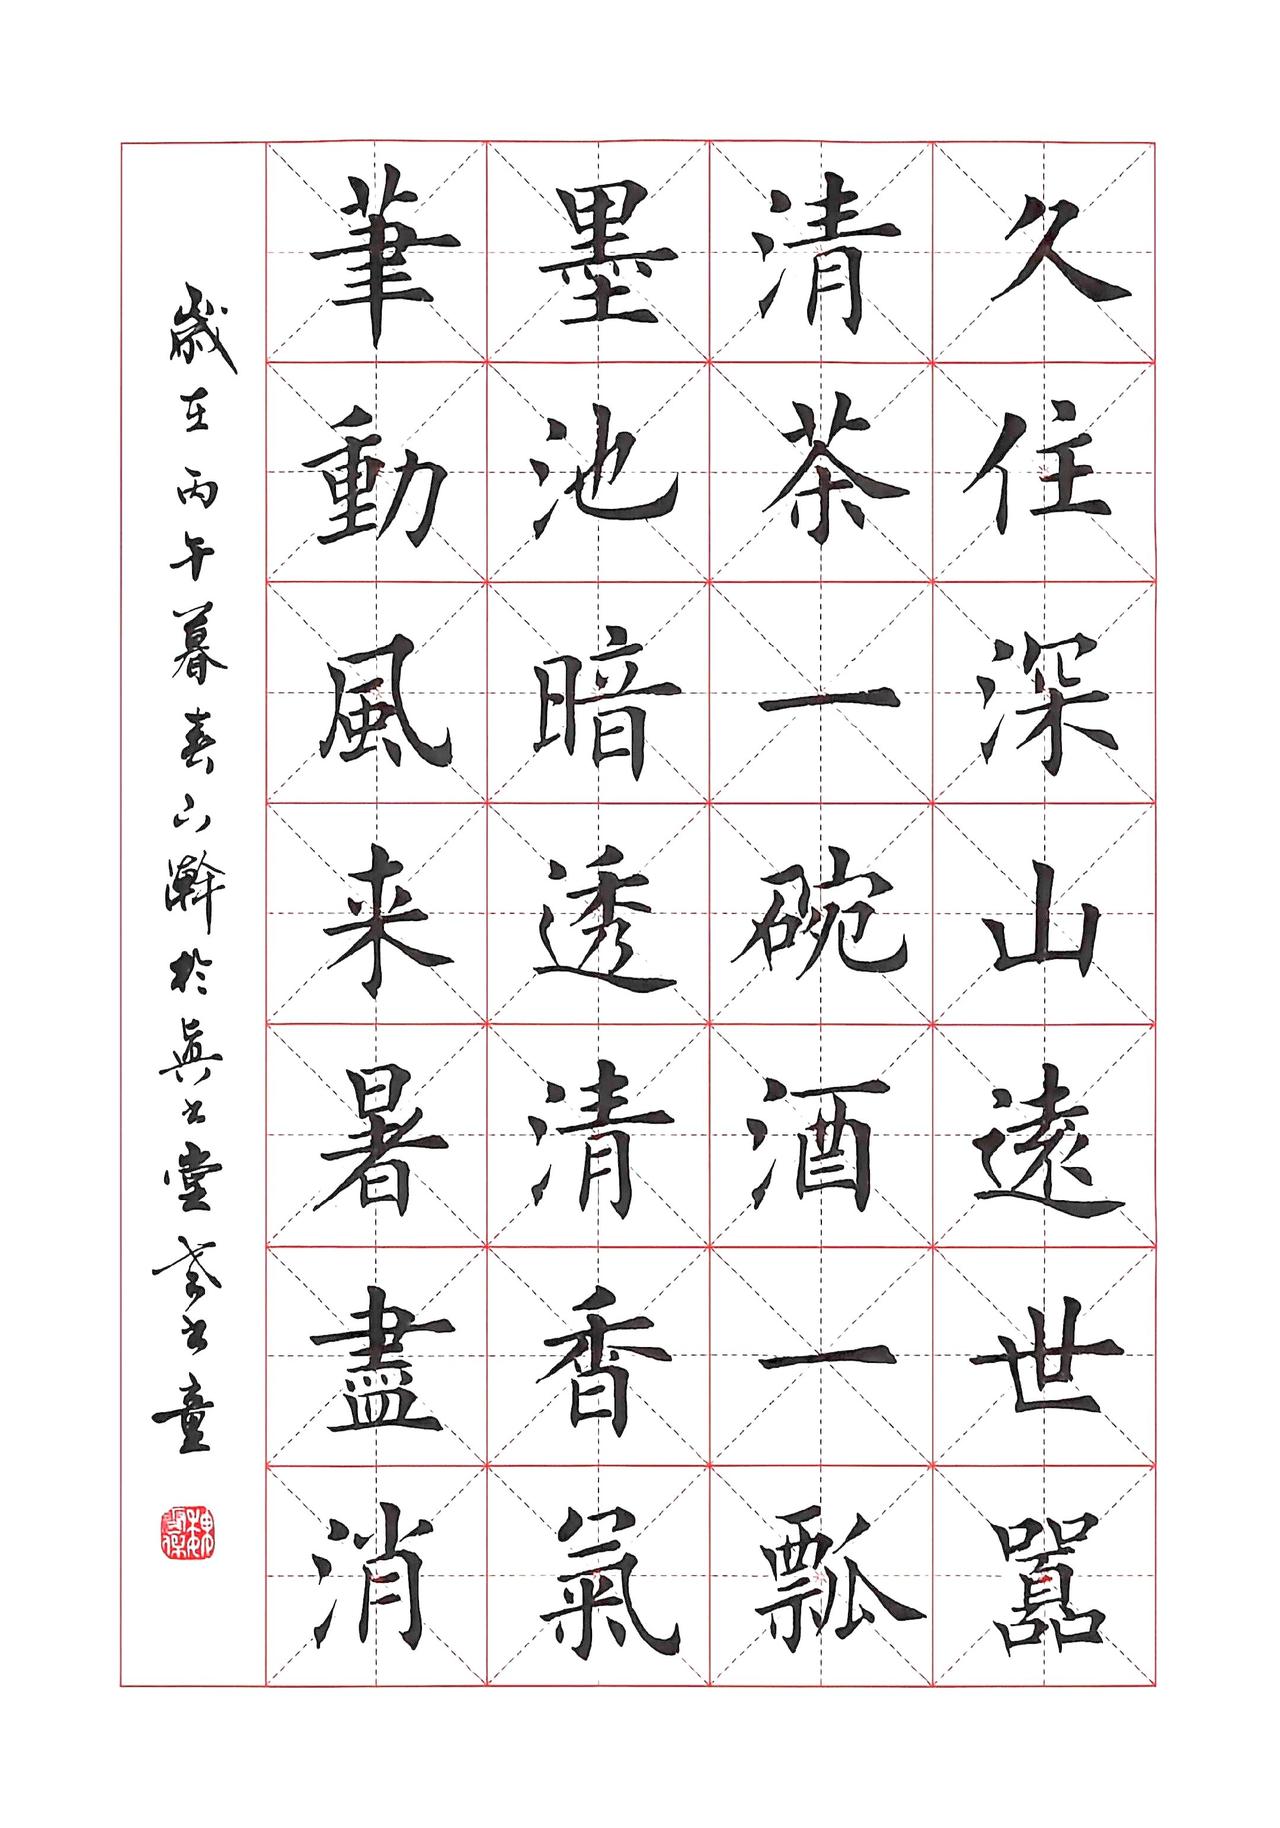 久住深山遠世囂
清茶一碗酒一瓢
墨池暗透清香氣
筆動風来暑盡消
歲在丙午暮春下澣於眞书堂书童